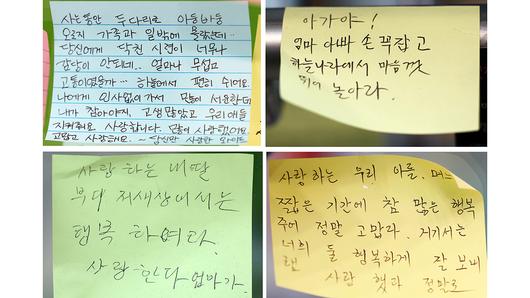 사는동안 두다리로 아둥바둥
오로지 가족과 일밖에 몰랐는데…
당신에게 닥친 시련이 너무나
감당이 안되네.. 얼마나 무섭고
고통이였을까… 하늘에서 편히 쉬어요.
나에게 인사없이가서 많이 서운한데
내가 참아야지, 고생많았고 우리애들
지켜줘요 사랑합니다. 많이 사랑했어요.
고맙고 사랑해요. ~ 당신만 사랑한 와이프
아가야!
엄마 아빠 손 꼭잡고
하늘나라에서 마음껏
뛰어 놀아라.
사랑 하는 내딸
부대 저세상에서는
행복 하여라.
사랑 한다 엄마가.
사랑하는 우리 아들. 며느
짧은 기간에 참 많은 행복
주어 정말 고맙다. 거기서는
너희 둘 행복하게 잘 보내
랜 사랑 했다 정말로